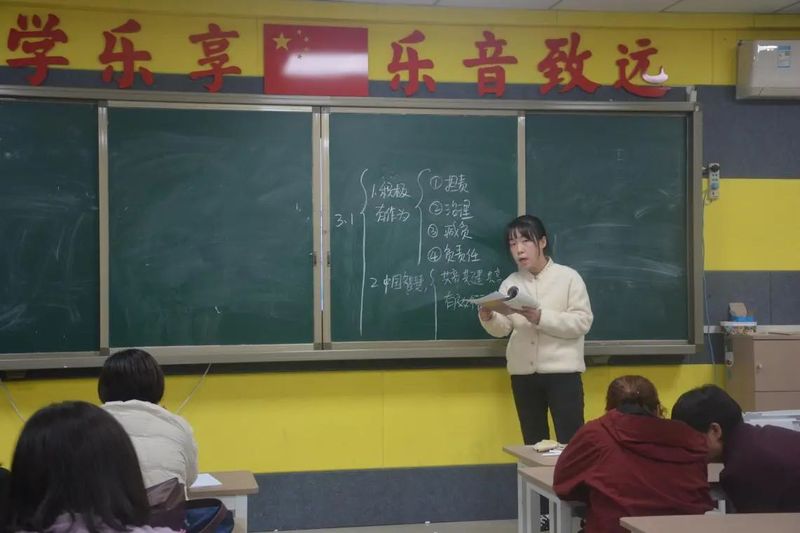 学乐享 乐音致远
3.1
1.积极
有作为
①担责
②治理
③减负
④负责任
2中国智慧
共商共建共享